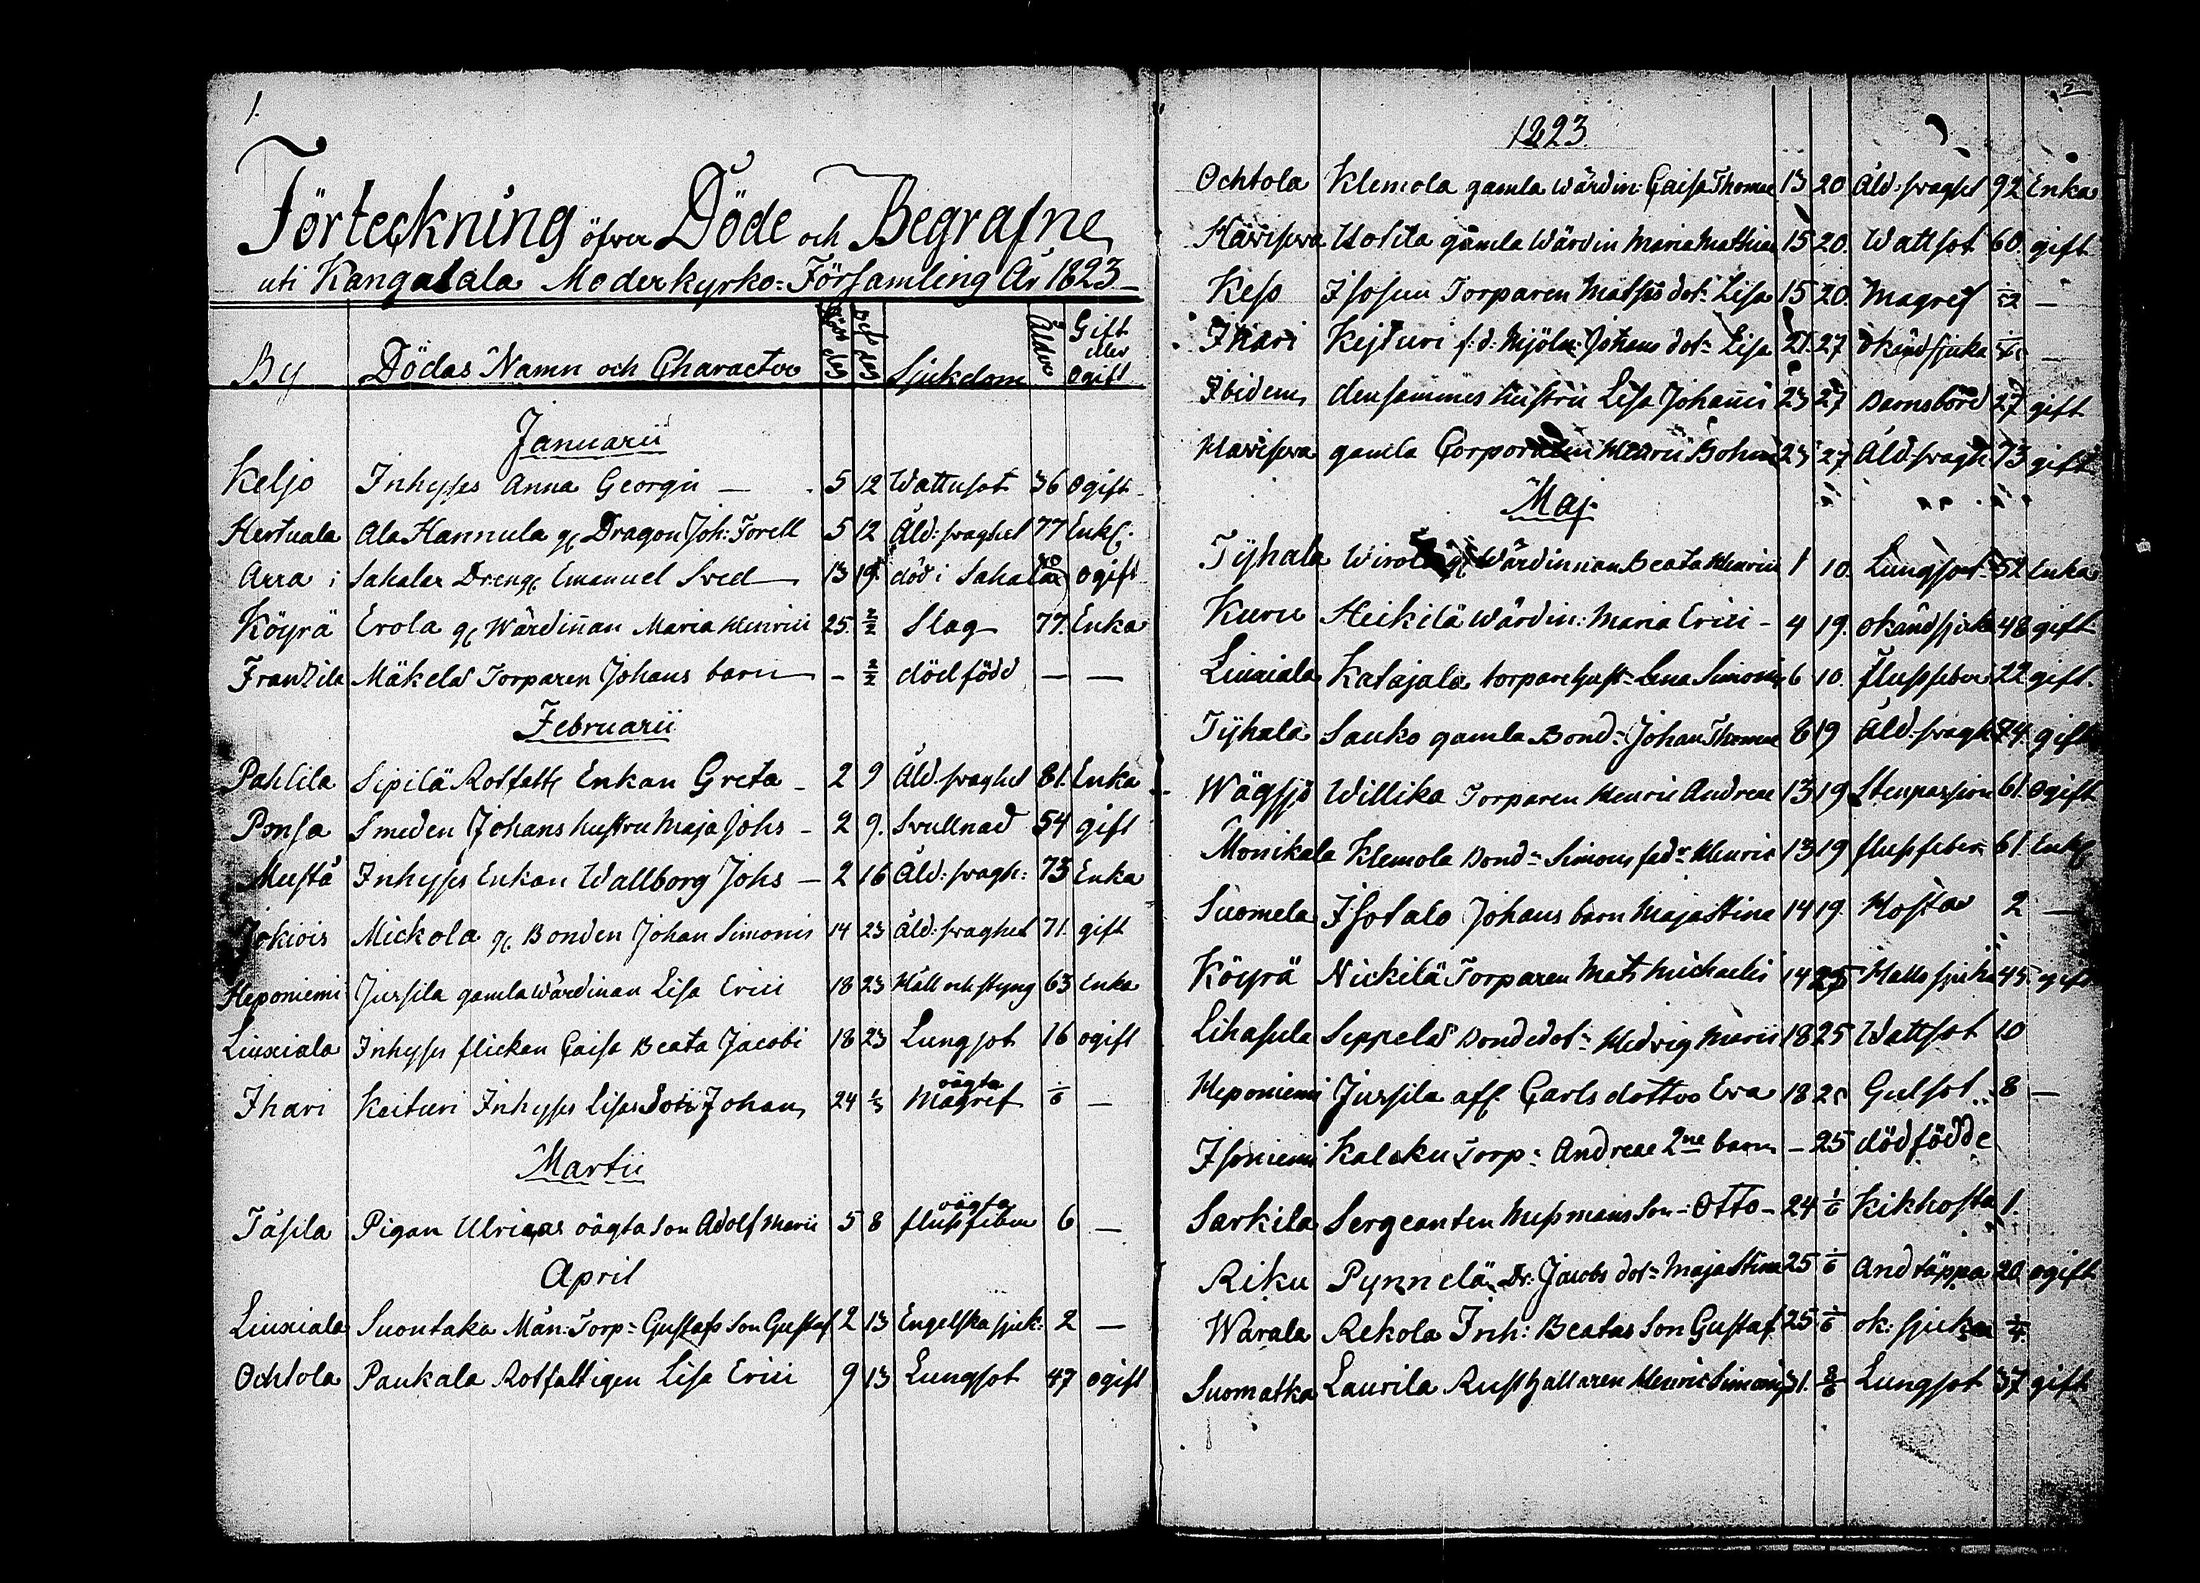 1.
Förteckning öfver Döde och Begrafne
uti Kangasala Moderkyrko=Församling År 1823
By Dödas Namn och Character Död den Beg den Sjukdom Ålder Gift eller Ogift
Januarii
Keljo Inhyses Anna Georgii — 5 12 Wattusot 36 Ogift
Hertuala Ala Hannula gl Dragon Joh: Forell 5 12 Åld: svaghet 77 Enkl.
Arra i Sahalax Dreng Emanuel Sved 13 19 död i Sahalax ogift
Köyrä Erola gl Wärdiñan Maria Henrici 25. 2/2 Slag 77. Enka
Franzila Mäkelas Torparen Johans barn — 2/2 dödfödd — —
Februarii
Pahlila Sipilä Rotfatt Enkan Greta - 2 9 Åld: svaghet 81. Enka
Ponsa Smeden Johans hustru Maja Johs - 2 9. Svullnad 54 gift
Mustå Inhyses Enkan Wallborg Johs — 2 16 Åld: svagh: 73 Enka
Jokiois Mickola gl Bonden Johan Simonis 14 23 Åld: svaghet 71. gift
Heponiemi Jussila gamla wärdinan Lisa Erici 18 23 Håll och styng 63 Enka
Liuxiala Inhyses flickan Caisa Beata Jacobi 18 23 Lungsot 16 ogift
Ihari Keituri Inhyses Lisas Johan 24 1/3 oägta Magref 1/6 —
Martii
Tåsila Pigan Ulricas oägta Son Adolf 5 8 oägta flussfeber 6 —
April
Liuxiala Suontaka Män: Torp= Gustafs Son Gustaf 2 13 Engelska sjuk: 2 —
Ochtola Paukala Rotfattigen Lisa Erici 9 13 Lungsot 47 ogift
1823.
Ochtola Klemola gamla wärdin: Caisa Thomae 13 20 Åld: svaghet 92 Enka
Havisevra gamla Wärdin Maria Mathiae 15 20. Wattsot 60. gift
Keso Torparen Matses dot= Lisa 15 20. Magref —
Ihari Kejturi f: d: Mjöln: Johans dot= Lisa 21 27 okändsjuka —
Ibidem densammes hustru Lisa Johañis 23 27 Barnsbörd 27 gift
Havisevra gamla Corporalen 23 27 Åld: svagh 73 gift
Maj.
Tÿhala Wirola gl Wärdinnan Beata Henrici 1 10. Lungsot 52 Enka
Kuru Heikilä Wärdin: Maria Erici - 4 19. okändsjuka 48 gift
Liuxiala Katajala torpare hust= Lena Simonis 6 10. flussfeber 22 gift.
Tÿhala Sauko gamla Bond= Johan Thomae 8 19 Åld: svagh 74. gift
Wägsjö Willika Torparen Henric Andreae 13 19 Stenpassion 61. Ogift
Monikala Klemola Bond= Simons fadr Henric 13 19 flussfeber 61. Enkl
Suomela Isotalo Johans barn Majastina 14 19. Hosta 2 —
Köyrä Nickilä Torparen Mats Michaelis 14 25 45. gift
Lihasula Seppelas Bondedot= Hedvig 18 25 Wattsot 10
Heponiemi Jussila aff. Carls dotter Eva 18 25 Gulsot 8 —
Isoniemi Kaleku Torp= Andreae 2ne barn — 25 dödfödde
Sarkila Sergeanten Son= Otto — 24 1/6 Kikhosta 1.
Riku Pynnelä Dr: Jacobs dot= Majastina 25 1/6 Andtäppa 20 ogift
Warala Rekola Inh: Beatas Son Gustaf 25 1/6 ok: sjuka
Suomatka Laurila Rusthållaren Henric Simonis 31. 8/6 Lungsot 37. gift